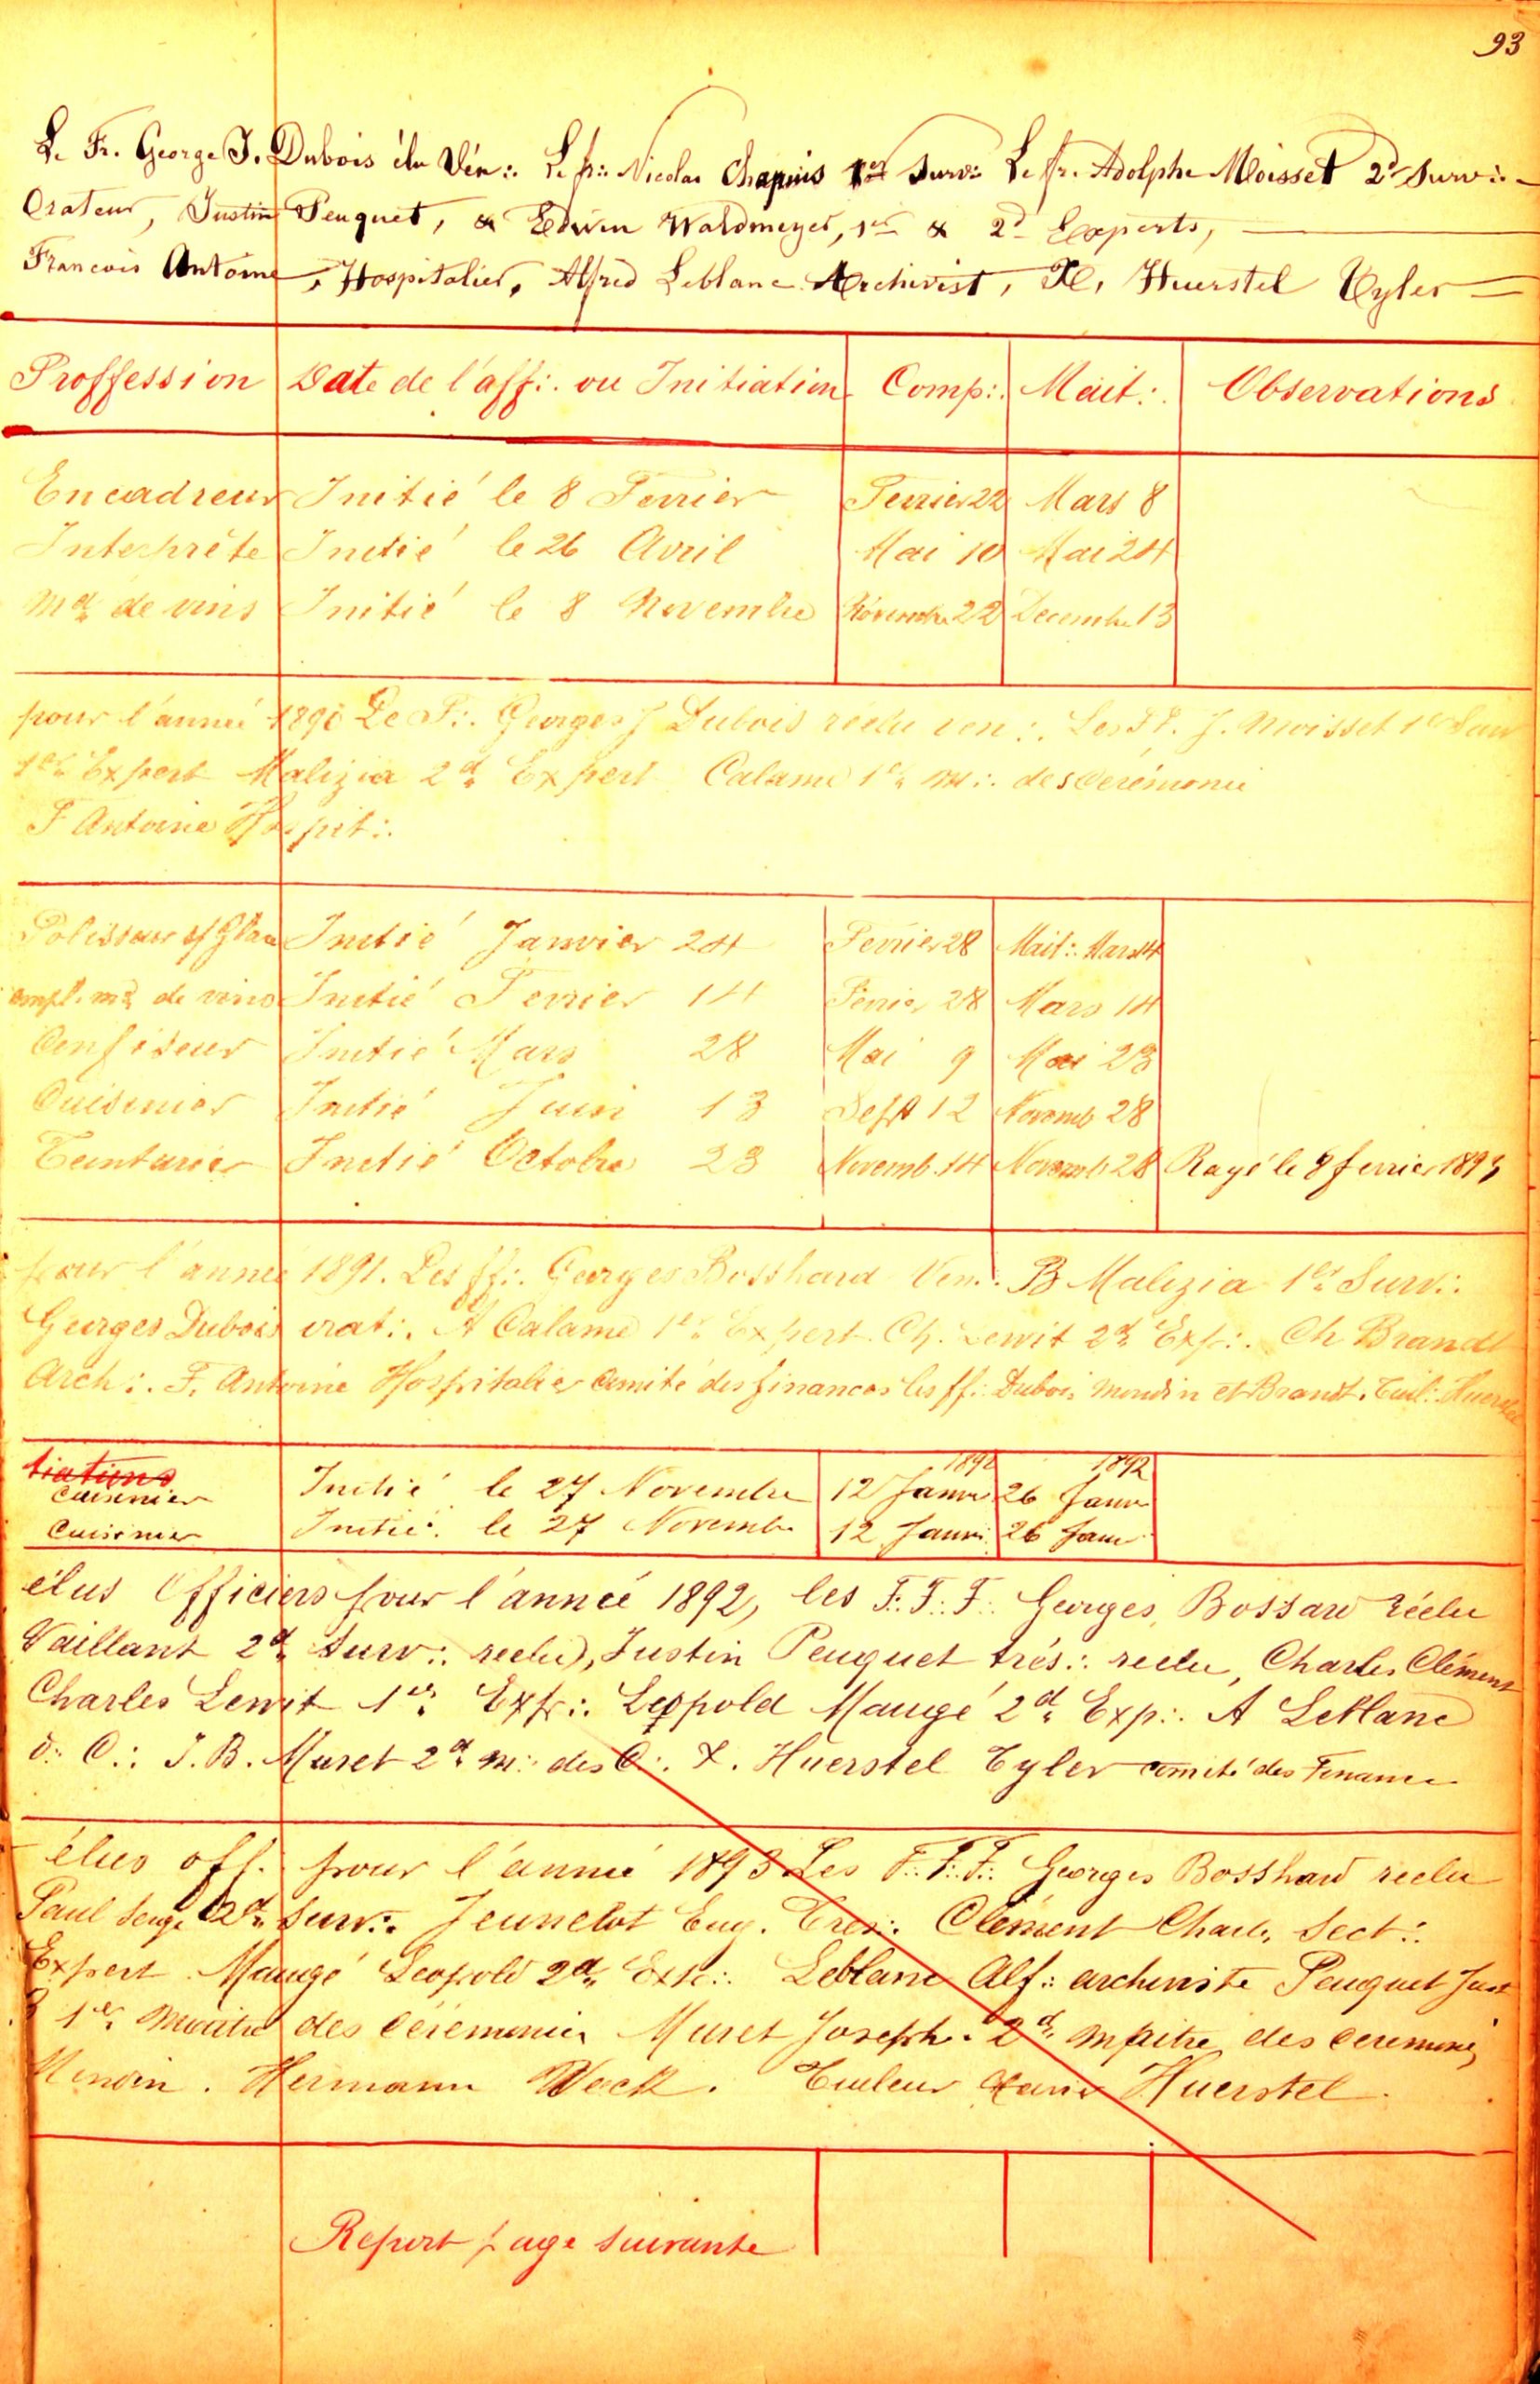 93
Le Fr. George J. Dubois élu Vén∴ Le fr∴ Nicolas Chapuis 1er Surv∴ Le fr. Adolphe Moisset 2d Surv∴
Orateur, Justin Peuquet, & Edwin Waldmeyer, 1er & 2d Experts,
Francois Antoine, Hospitalier, Alfred Leblanc Archivist, X. Huerstel Tyler
Proffession Date de l'aff∴ ou Initiation Comp∴ Mait∴ Observations
Encadreur Initié le 8 Fevrier Fevrier 22 Mars 8
Interprète Initié le 26 Avril Mai 10 Mai 24
Md de vins Initié le 8 Novembre Novembre 22 Decembre 13
pour l'année 1890 Le F∴ Georges J Dubois réélu ven∴ Les ff. J. Moisset 1er Surv
1er Expert Malizia 2d Expert Calame 1er M∴ des Cerémonie
F Antoine Hospit∴
Polisseur s/ Glace Initié Janvier 24 Fevrier 28 Mait∴ Mars 14
empl. md de vins Initié Fevrier 14 Fevrier 28 Mars 14
Confiseur Initié Mars 28 Mai 9 Mai 23
Cuisinier Initié Juin 13 Sept 12 Novemb 28
Teinturier Initié Octobre 23 Novemb. 14 Novemb 28 Rayé le 8 fevrier 1893
pour l'année 1891. Les ff∴ Georges Bosshard Ven∴ B Malizia 1er Surv∴
Georges Dubois orat∴ A Calame 1er Expert. Ch. Lewit 2d Exp∴ Ch Brandt
Arch∴ F. Antoine Hospitalier Comité des finances les ff∴ Dubois Mondin et Brandt. Tuil∴ Huerstel
tiations
Cuisinier Initié le 27 Novembre 1892 12 Janv 1892 26 Janv
Cuisinier Initié le 27 Novembre 12 Janv 26 Janv
élus Officiers pour l'année 1892, les F∴F∴F∴ Georges Bossard réélu
Vaillant 2d Surv∴ reelu, Justin Peuquet trés∴ reelu, Charles Clément
Charles Lewit 1er Exp∴ Leopold Maugé 2d Exp∴ A Leblanc
d∴ C∴ J. B. Muret 2d M∴ des C∴ X. Huerstel Tyler comité des Finance
élus off. pour l'année 1893 Les F∴F∴F∴ Georges Bosshard reelu
Paul 2d Surv∴ Jeunelot Eug. Tres∴ Clément Charles Sect∴
Expert Maugé Leopold 2d Exp∴ Leblanc Alf∴ archiviste Peuquet Just
1er Maitre des Cérémonies Muret Joseph. 2d Maitre des ceremonies
Mondin. Hermann Weck. Tuileur Xavier Huerstel.
Report page suivante